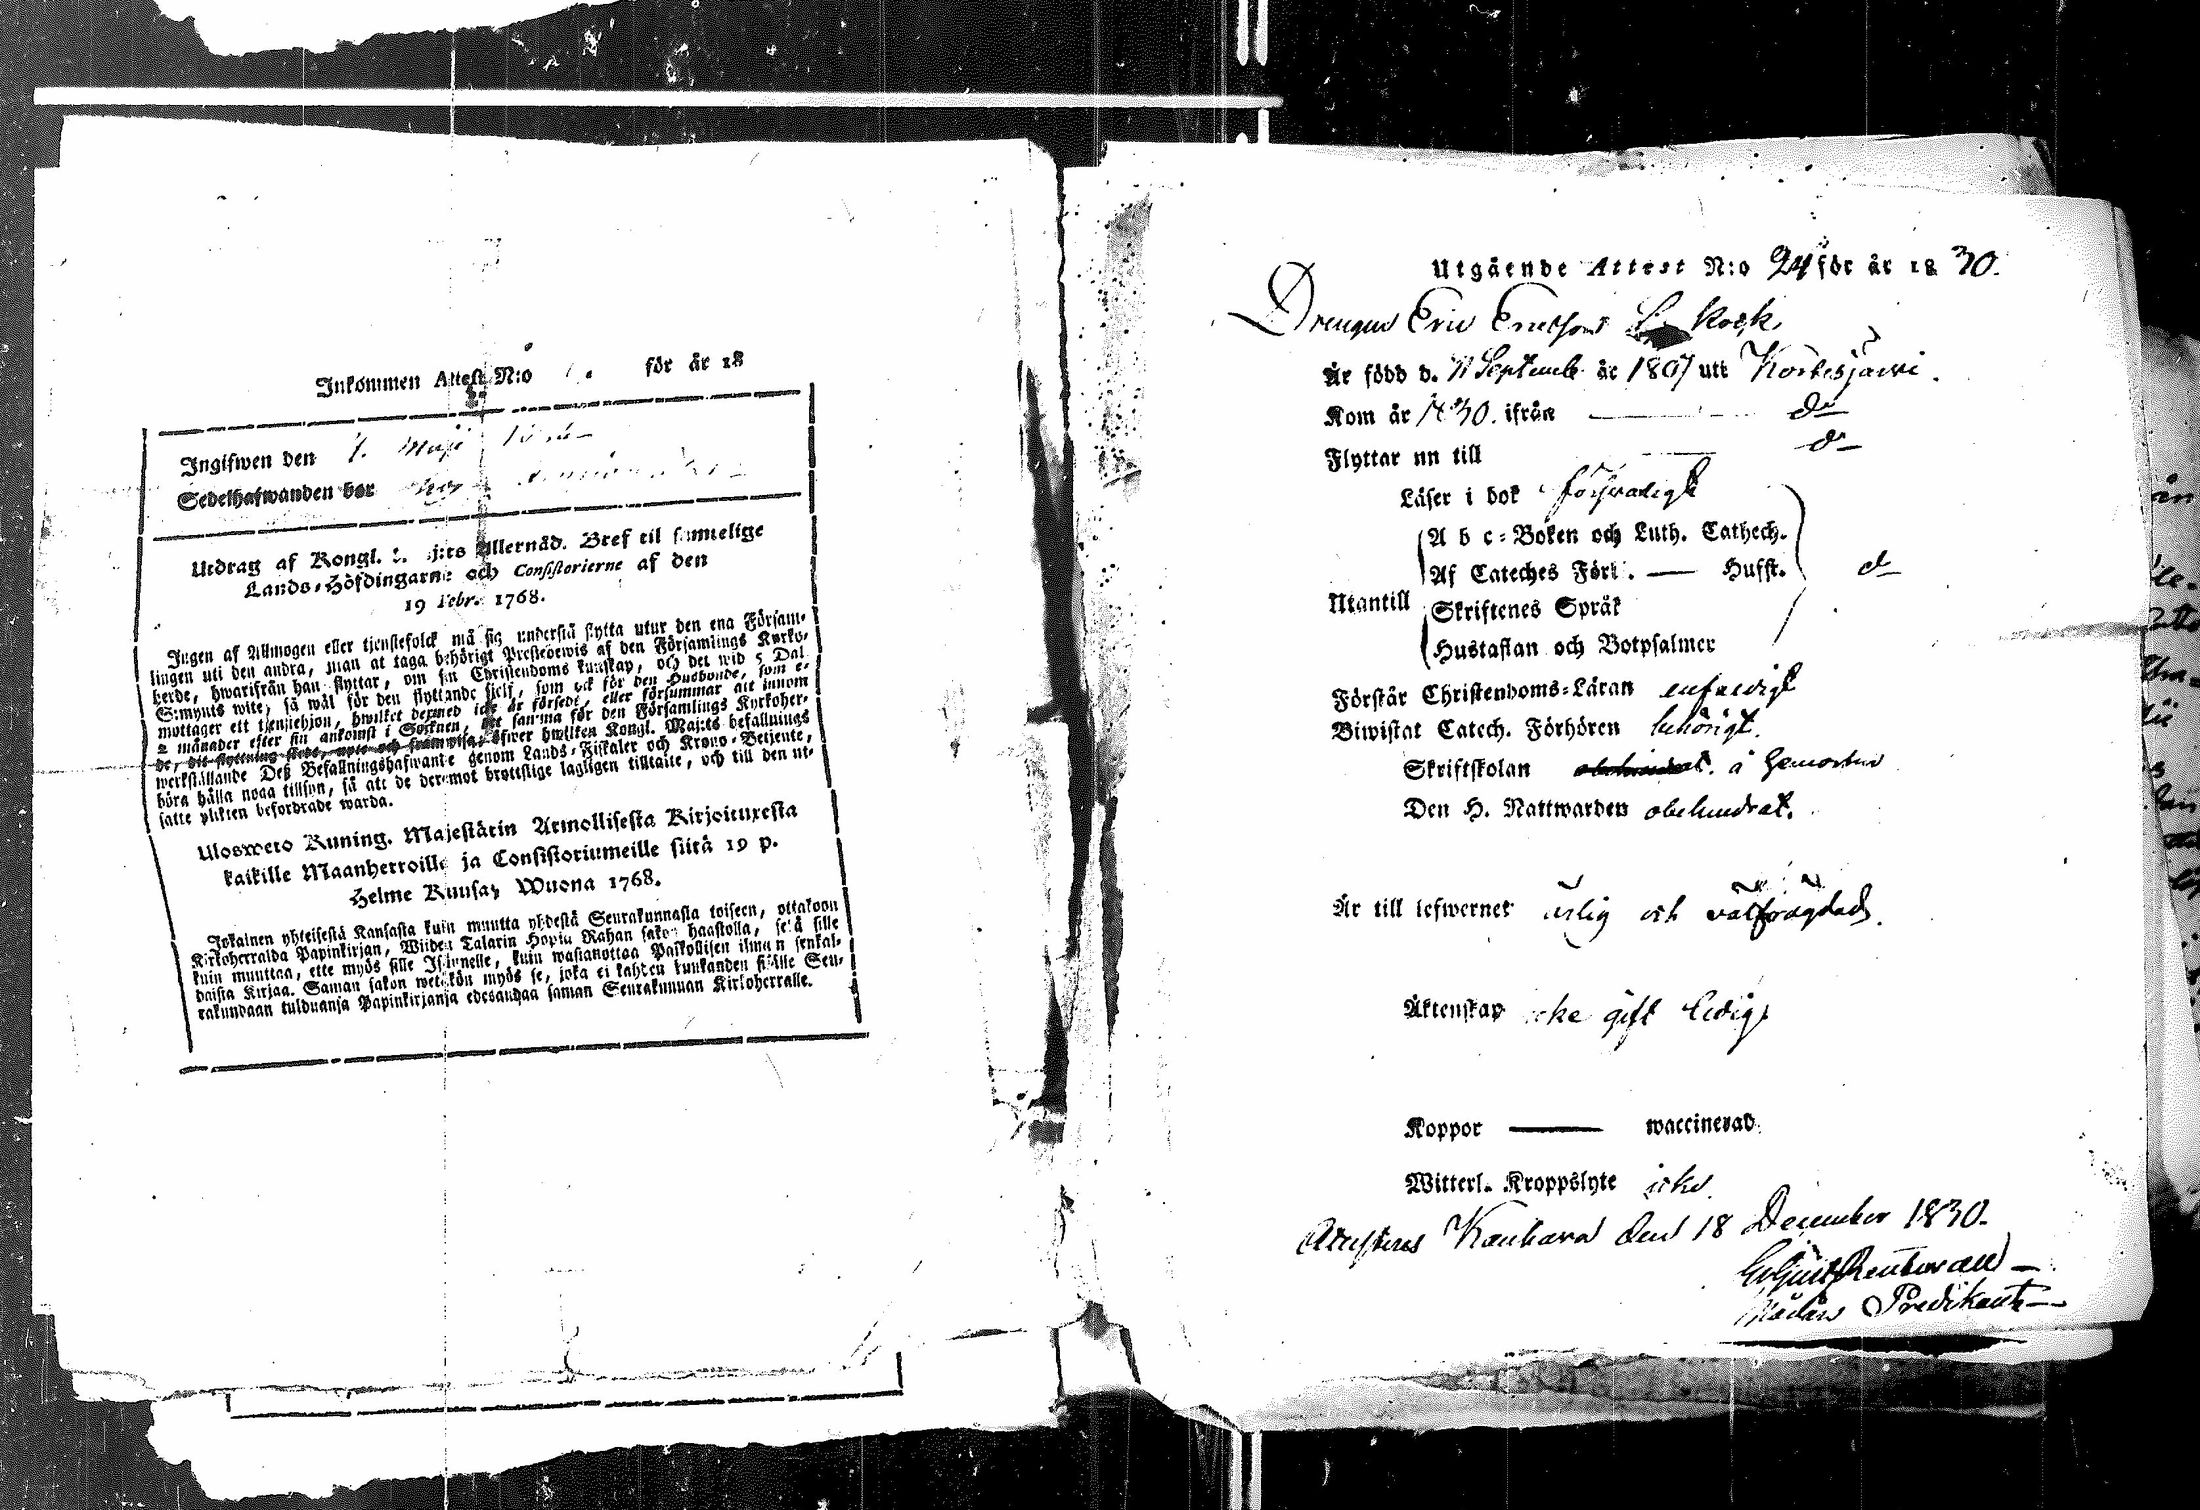 Inkommen Attest N:o för år 18
Ingifwen den 7. Maji
Sedelhafwanden bor hos
Utdrag af Kongl. Maj:ts Allernåd. Bref til samtelige
Lands-Höfdingarne och Consistorierne af den
19 Febr. 1768.
Ingen af Allmogen eller tjenstefolck må sig understå flytta utur den ena Försam-
lingen uti den andra, utan at taga behörigt Prestebewis af den Församlings Kyrko-
herde, hwarifrån han flyttar, om sin Christendoms kunskap, och det wid 5 Dal.
S:mynts wite, så wäl för den flyttande sjelf, som ock för den Husbonde, som e-
mottager ett tjenstehjon, hwilket dermed icke är försedt, eller försummar att innom
2 månader efter sin ankomst i Socknen, det samma för den Församlings Kyrkoher-
de, dit flyttning skedt, upte och framwisa, öfwer hwilken Kongl. Maj:ts befallnings
werkställande Deß Befallningshafwante genom Lands-Fiskaler och Krono-Betjente,
böra hålla noga tillsyn, så att de deremot brottslige lagligen tilltalte, och till den ut-
satte plikten befordrade warda.
Ulosweto Kuning. Majestätin Armollisesta Kirjoituxesta
kaikille Maanherroille ja Consistoriumeille siitä 19 p.
Helme Kuusa, Wuona 1768.
Jokainen yhteisestä Kansasta kuin muutta yhdestä Seurakunnasta toiseen, ottakoon
Kirkoherralda Papinkirjan, Wiiden Talarin Hopia Rahan sakon haastolla, sekä sille
kuin muuttaa, ette myös sille Isännelle, kuin wastanottaa Palkollisen ilman senkal-
daista Kirjaa. Saman sakon wetäkön myös se, joka ei kahden kuukauden sisälle Seu-
rakundaan tulduansa Papinkirjansa edesandaa saman Seurakunnan Kirkoherralle.
Utgående Attest N:o 24 för år 1830.
Drengen Eric Ericsson Kock
Är född d. 11 Septemb. år 1807 uti Kortesjärvi.
Kom år 1830. ifrån — do
Flyttar nu till — do
Läser i bok försvarligt
A b c-Boken och Luth. Cathech.
Af Cateches Förkl. — Hufst. do
Utantill Skriftenes Språk
Hustaflan och Botpsalmer
Förstår Christendoms-Läran enfaldigt
Biwistat Catech. Förhören behörigt.
Skriftskolan å hemorten
Den H. Nattwarden obehindrat.
Är till lefwernet ärlig och välfrägdad.
Äktenskap icke gift ledig
Koppor — waccinerad.
Witterl. Kroppslyte icke
Attesteras Kauhava den 18 December 1830.
Predikant